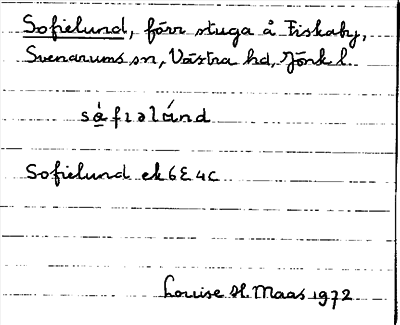 Sofielund, förr stuga å Fiskaby,
Svenarums sn, Västra hd, Jönk l.
såfɪəlánd
Sofielund ek 6E 4c
Louise H. Maas 1972